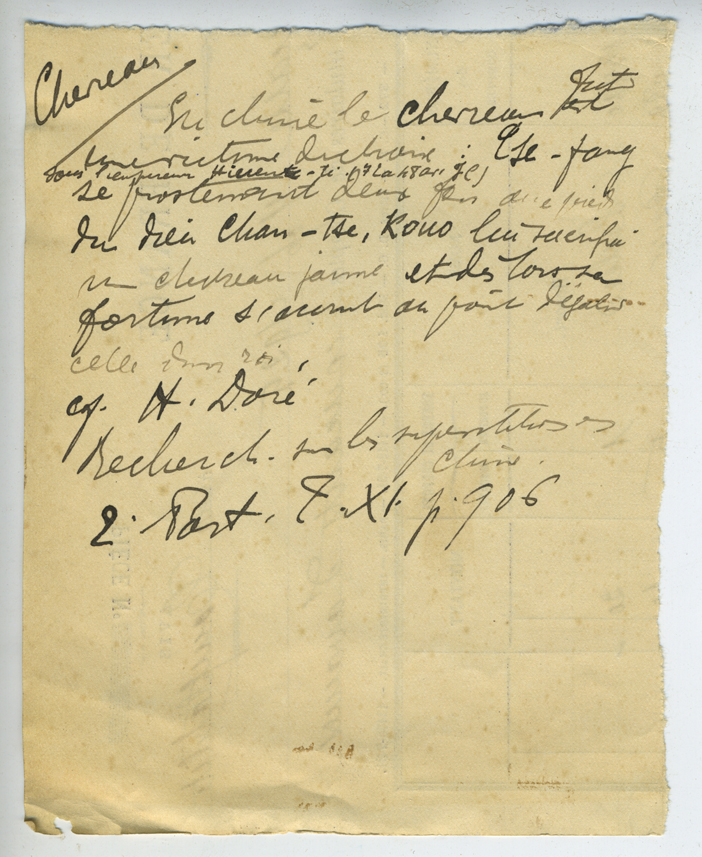 Chevreau
En chine le chevreau fut est
une victime de choix : Tse-fang
sous l'empereur Hiuente-Ti (73 à 48 av. JC)
se prosternant deux fois aux pieds
du dieu Chan-tse, Kouo lui sacrifia
un chevreau jaune et dès lors sa
fortune s'accrut au point d'égaler
celle d'un roi.
cf. H. Doré
Recherch. sur les superstitions en
Chine.
2. Part. T. XI. p. 906